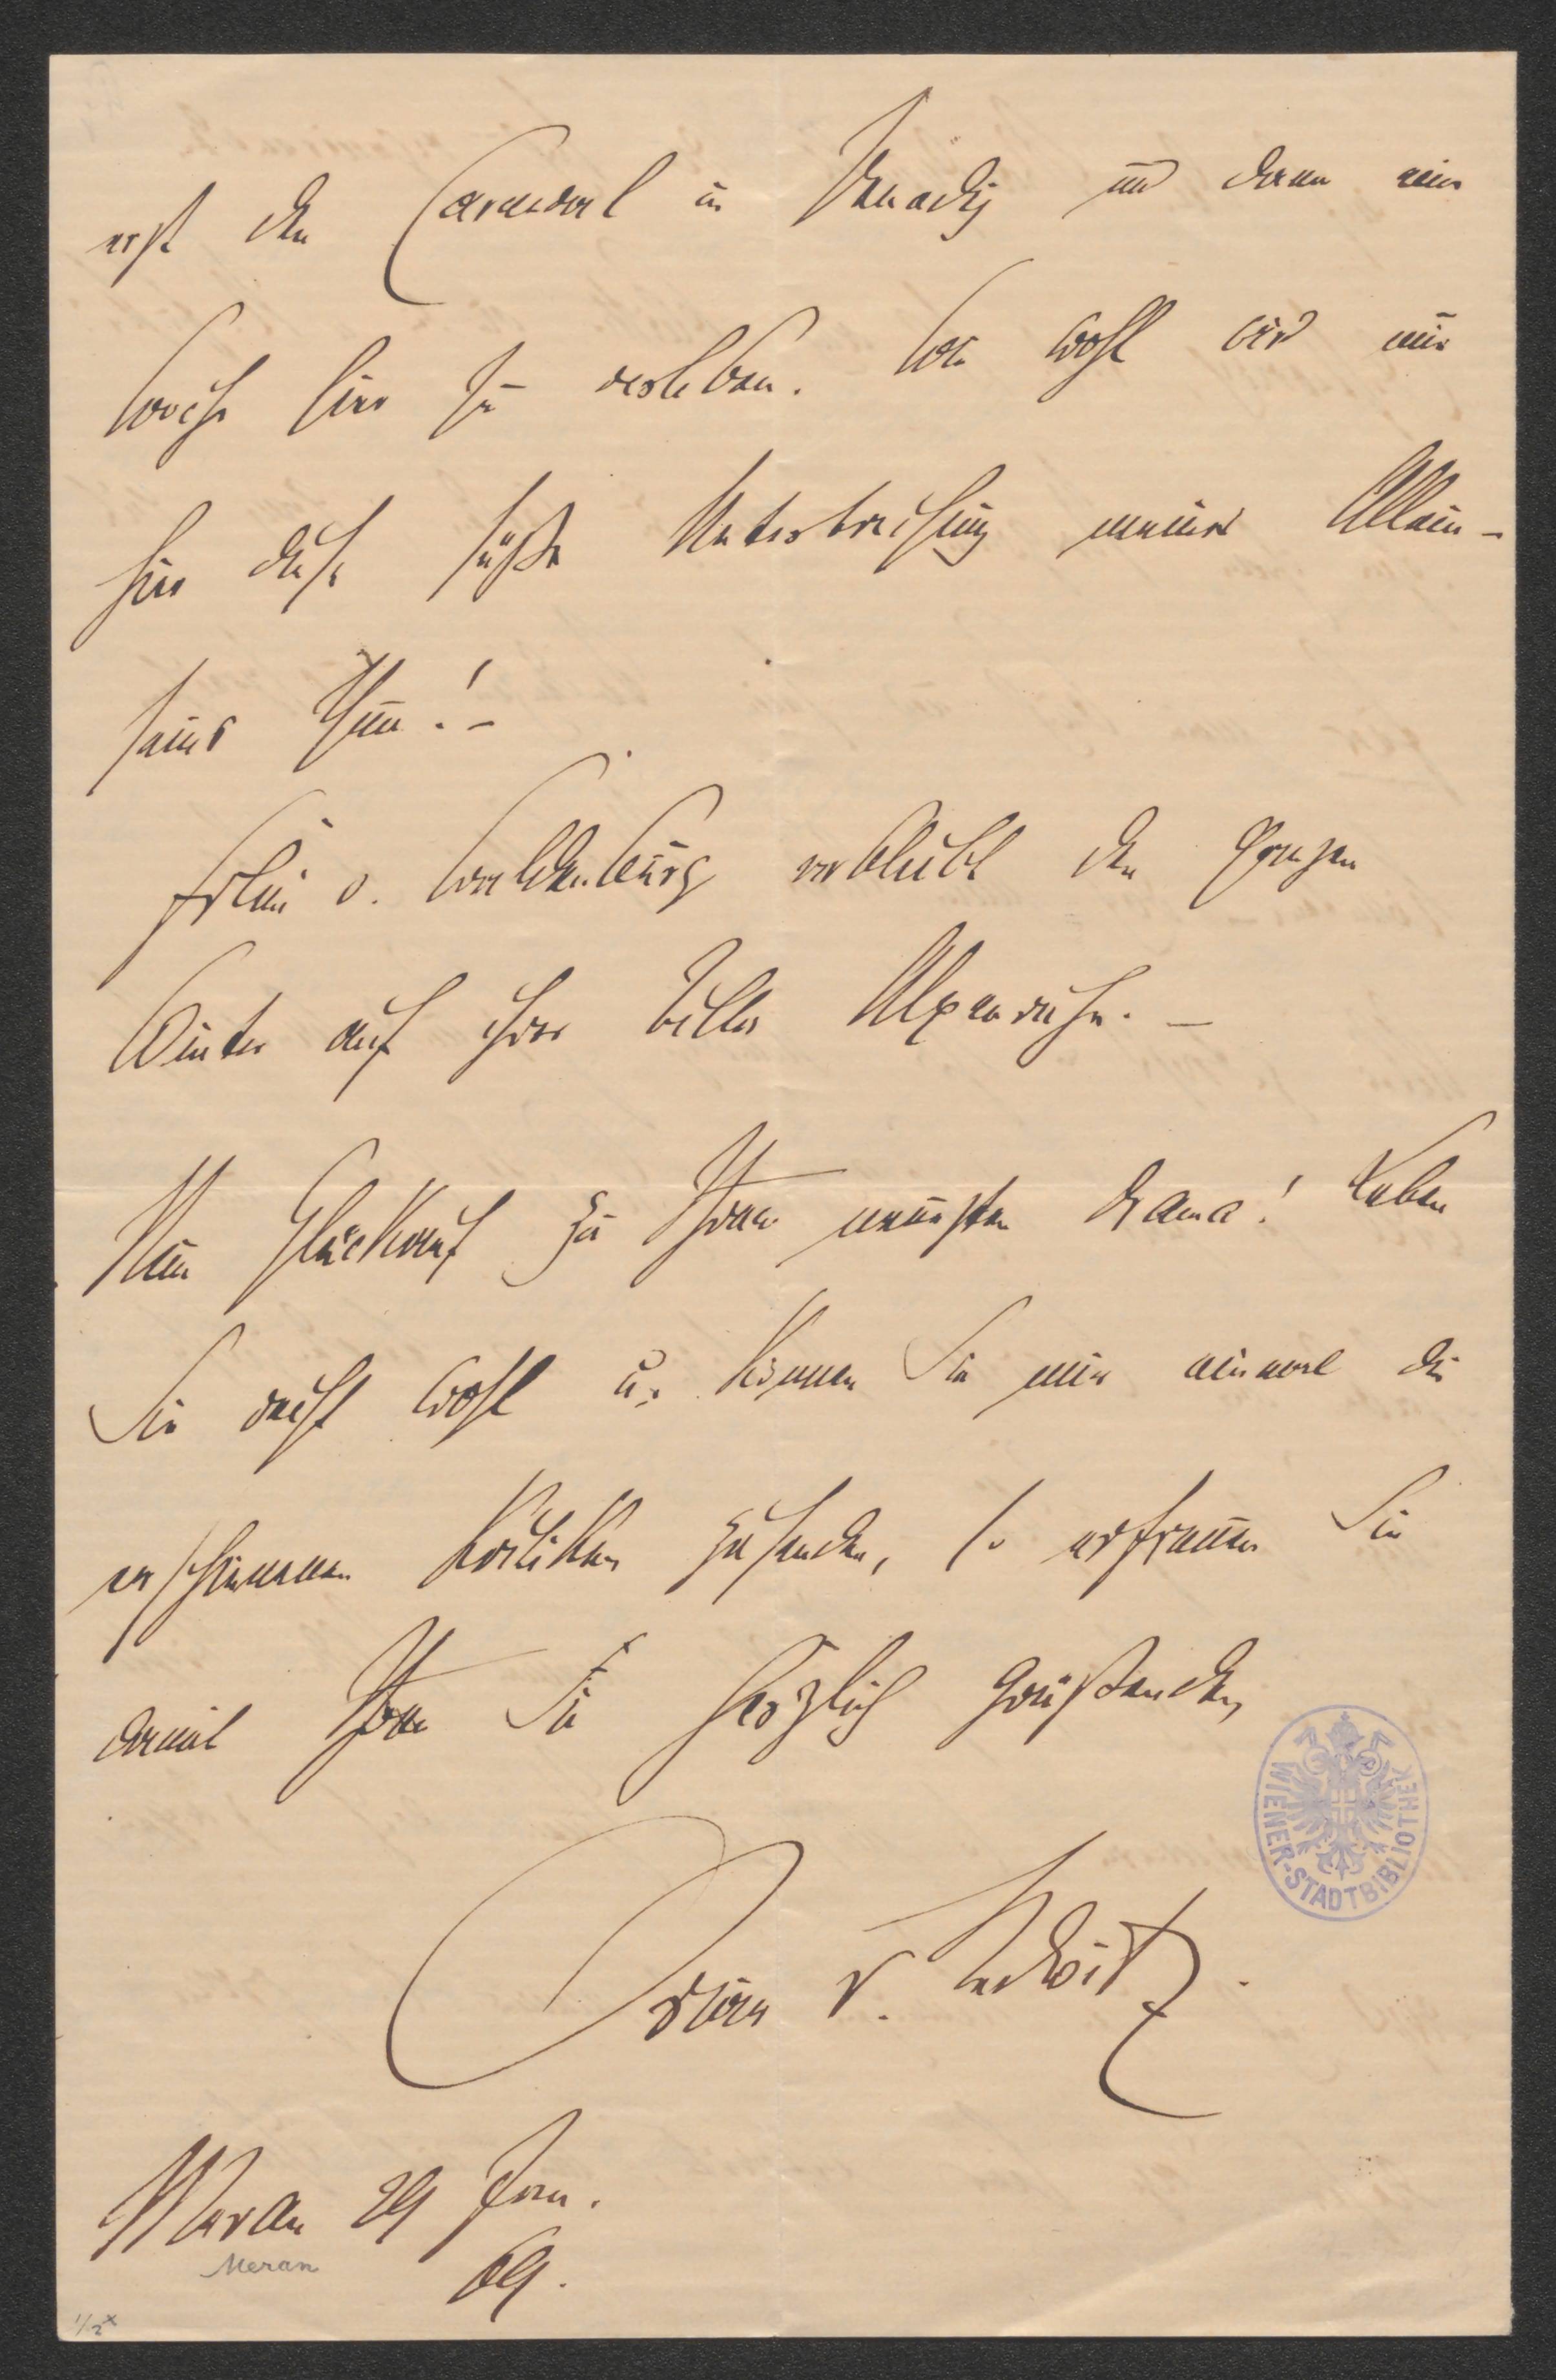 erst den Carneval in Venedig und dann eine
Woche hier zu verleben. Wie wohl wird mir
hier diese süße Unterbrechung meines Allein-
seins thun! –
Frlein v. Waldenburg verbleibt den ganzen
Winter auf ihrer Villa Alpenruhe. –
Nun Glückauf zu Ihrem neuesten Drama! Leben
Sie recht wohl u. können Sie mir einmal die
erschienenen Kritiken zusenden, so erfreuen Sie
damit Ihren Sie herzlich grüßenden
v. Redwitz.
Meran 29 Jan.
Meran
69.
1/2 x
WIENER-STADTBIBLIOTHEK